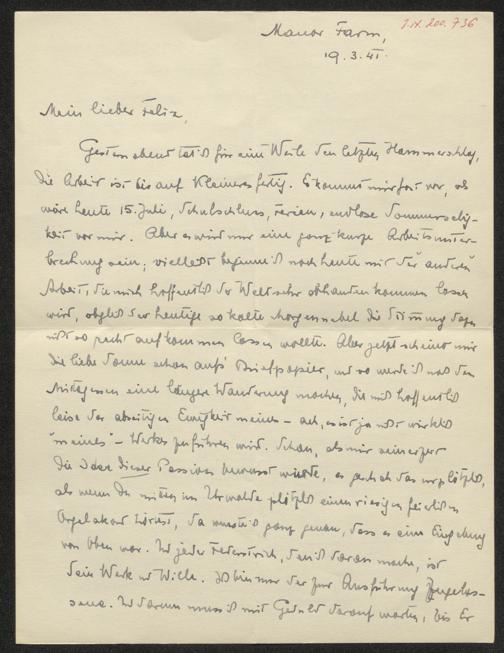 J.N. 200.736
Manor Farm,
19.3.41.
Mein lieber Felix,
Gestern abend tat ich für eine Weile den letzten Hammerschlag,
die Arbeit ist bis auf Kleineres fertig. Es kommt mir fast vor, als
wäre heute 15. Juli, Schulschluss, Ferien, endlose Sommerselig-
keit vor mir. Aber es wird nur eine ganz kurze Arbeitsunter-
brechung sein; vielleicht beginne ich noch heute mit der anderen
Arbeit, die mich hoffentlich der Welt sehr abhanden kommen lassen
wird, obgleich der heutige so kalte Morgennebel die Stimmung dazu
nicht so recht aufkommen lassen wollte. Aber jetzt scheint mir
die liebe Sonne schon aufs Briefpapier, und so werde ich nach dem
Mittagessen eine längere Wanderung machen, die mich hoffentlich
leise der abseitigen Ewigkeit meines – ach, es ist ja nicht wirklich
"meines" – Werkes zuführen wird. Schon, als mir seinerzeit
die Idee dieser Passion bewusst wurde, es geschah das urplötzlich,
als wenn Du mitten im Urwalde plötzlich einen riesigen feierlichen
Orgelakkord hörtest, da wusste ich ganz genau, dass es eine Eingebung
von Oben war. Und jeder Federstrich, den ich daran mache, ist
Sein Werk und Wille. Ich bin nur der zur Ausführung Zugelas-
sene. Und darum muss ich mit Geduld darauf warten, bis Er